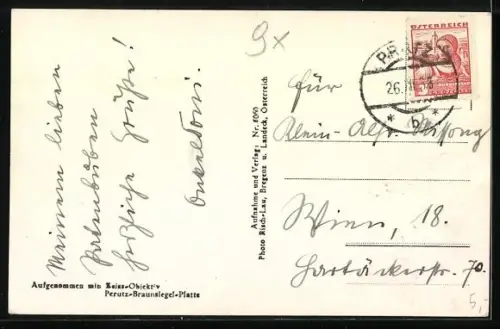 Meinem lieben
Patenbüben
herzliche Grüße!
Onkel Toni.
Aufgenommen mit Zeiss-Objektiv
Perutz-Braunsiegel-Platte
Aufnahme und Verlag, Nr. 8050
Photo Risch-Lau, Bregenz u. Landeck, Österreich
9x
ÖSTERREICH
26.
* b *
für
Klein-Alfr.
Wien, 18.
Hartäckerstr. 70.
5,-